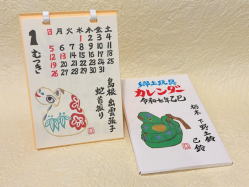 1
むつき
日月火水木金土
1 2 3 4
5 6 7 8 9 10 11
12 13 14 15 16 17 18
19 20 21 22 23 24 25
26 27 28 29 30 31
島根 出雲張子
蛇首振り
郷土玩具
カレンダー
令和七年乙巳
栃木 下野土鈴
巳鈴